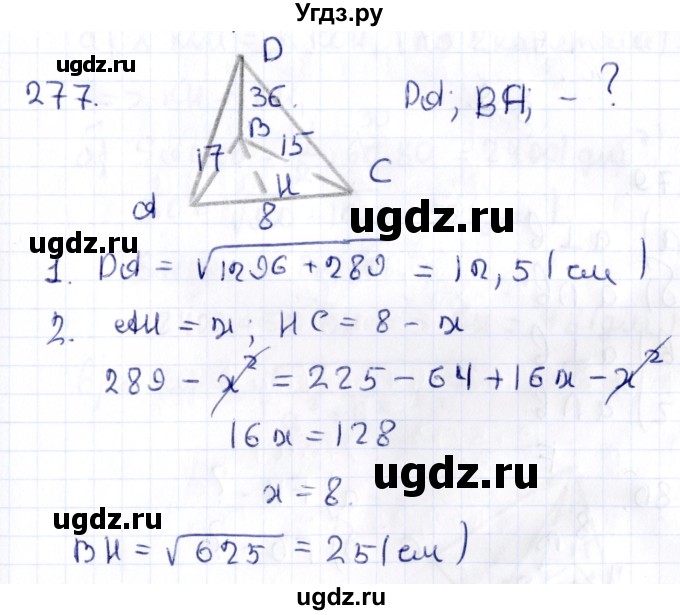 Угдз.ру
ugdz.ru
ugdz.ru
277.
D
36.
B
15
17
H
C
A
8
DA; BA; - ?
ugdz.ru
1. DA = √1296 + 289 = 12,5 (см)
2. AH = x; HC = 8 - x
289 - x² = 225 - 64 + 16x - x²
16x = 128
ugdz.ru
x = 8.
ugdz.ru
BH = √625 = 25 (см)
ugdz.ru
ugdz.ru